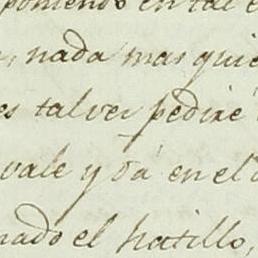 poniendo en tal e
, nada mas quie
es talvez pediré
vale y dá en el
nado el hatillo,